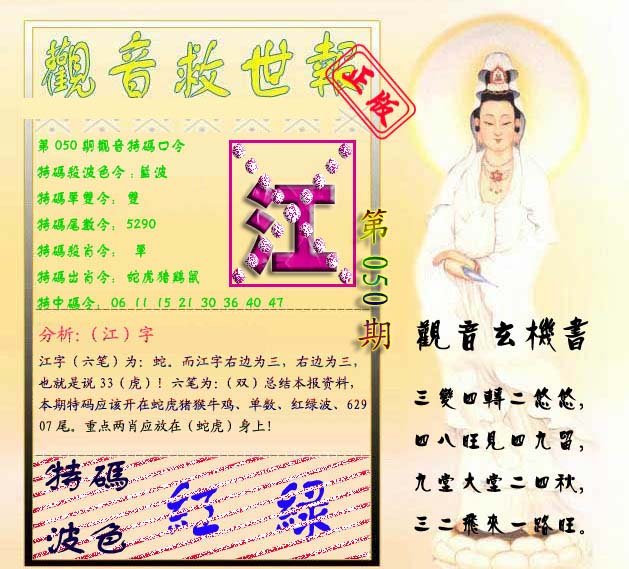 觀音救世報
正版
第 050 期觀音特碼口令
特碼殺波色令：藍波
特碼單雙令： 雙
特碼尾數令： 5290
特碼殺肖令： 單
特碼出肖令： 蛇虎猪鷄鼠
特中碼令： 06 11 15 21 30 36 40 47
江
第 050 期
分析：（江）字
江字（六笔）为：蛇。而江字右边为三，右边为三，
也就是说 33（虎）！六笔为：（双）总结本报资料，
本期特码应该开在蛇虎猪猴牛鸡、单数、红绿波、629
07 尾。重点两肖应放在（蛇虎）身上！
特碼
波色
紅 綠
觀音玄機書
三變四轉二悠悠，
四八旺見四九留，
九堂大堂二四秋，
三二飛來一路旺。